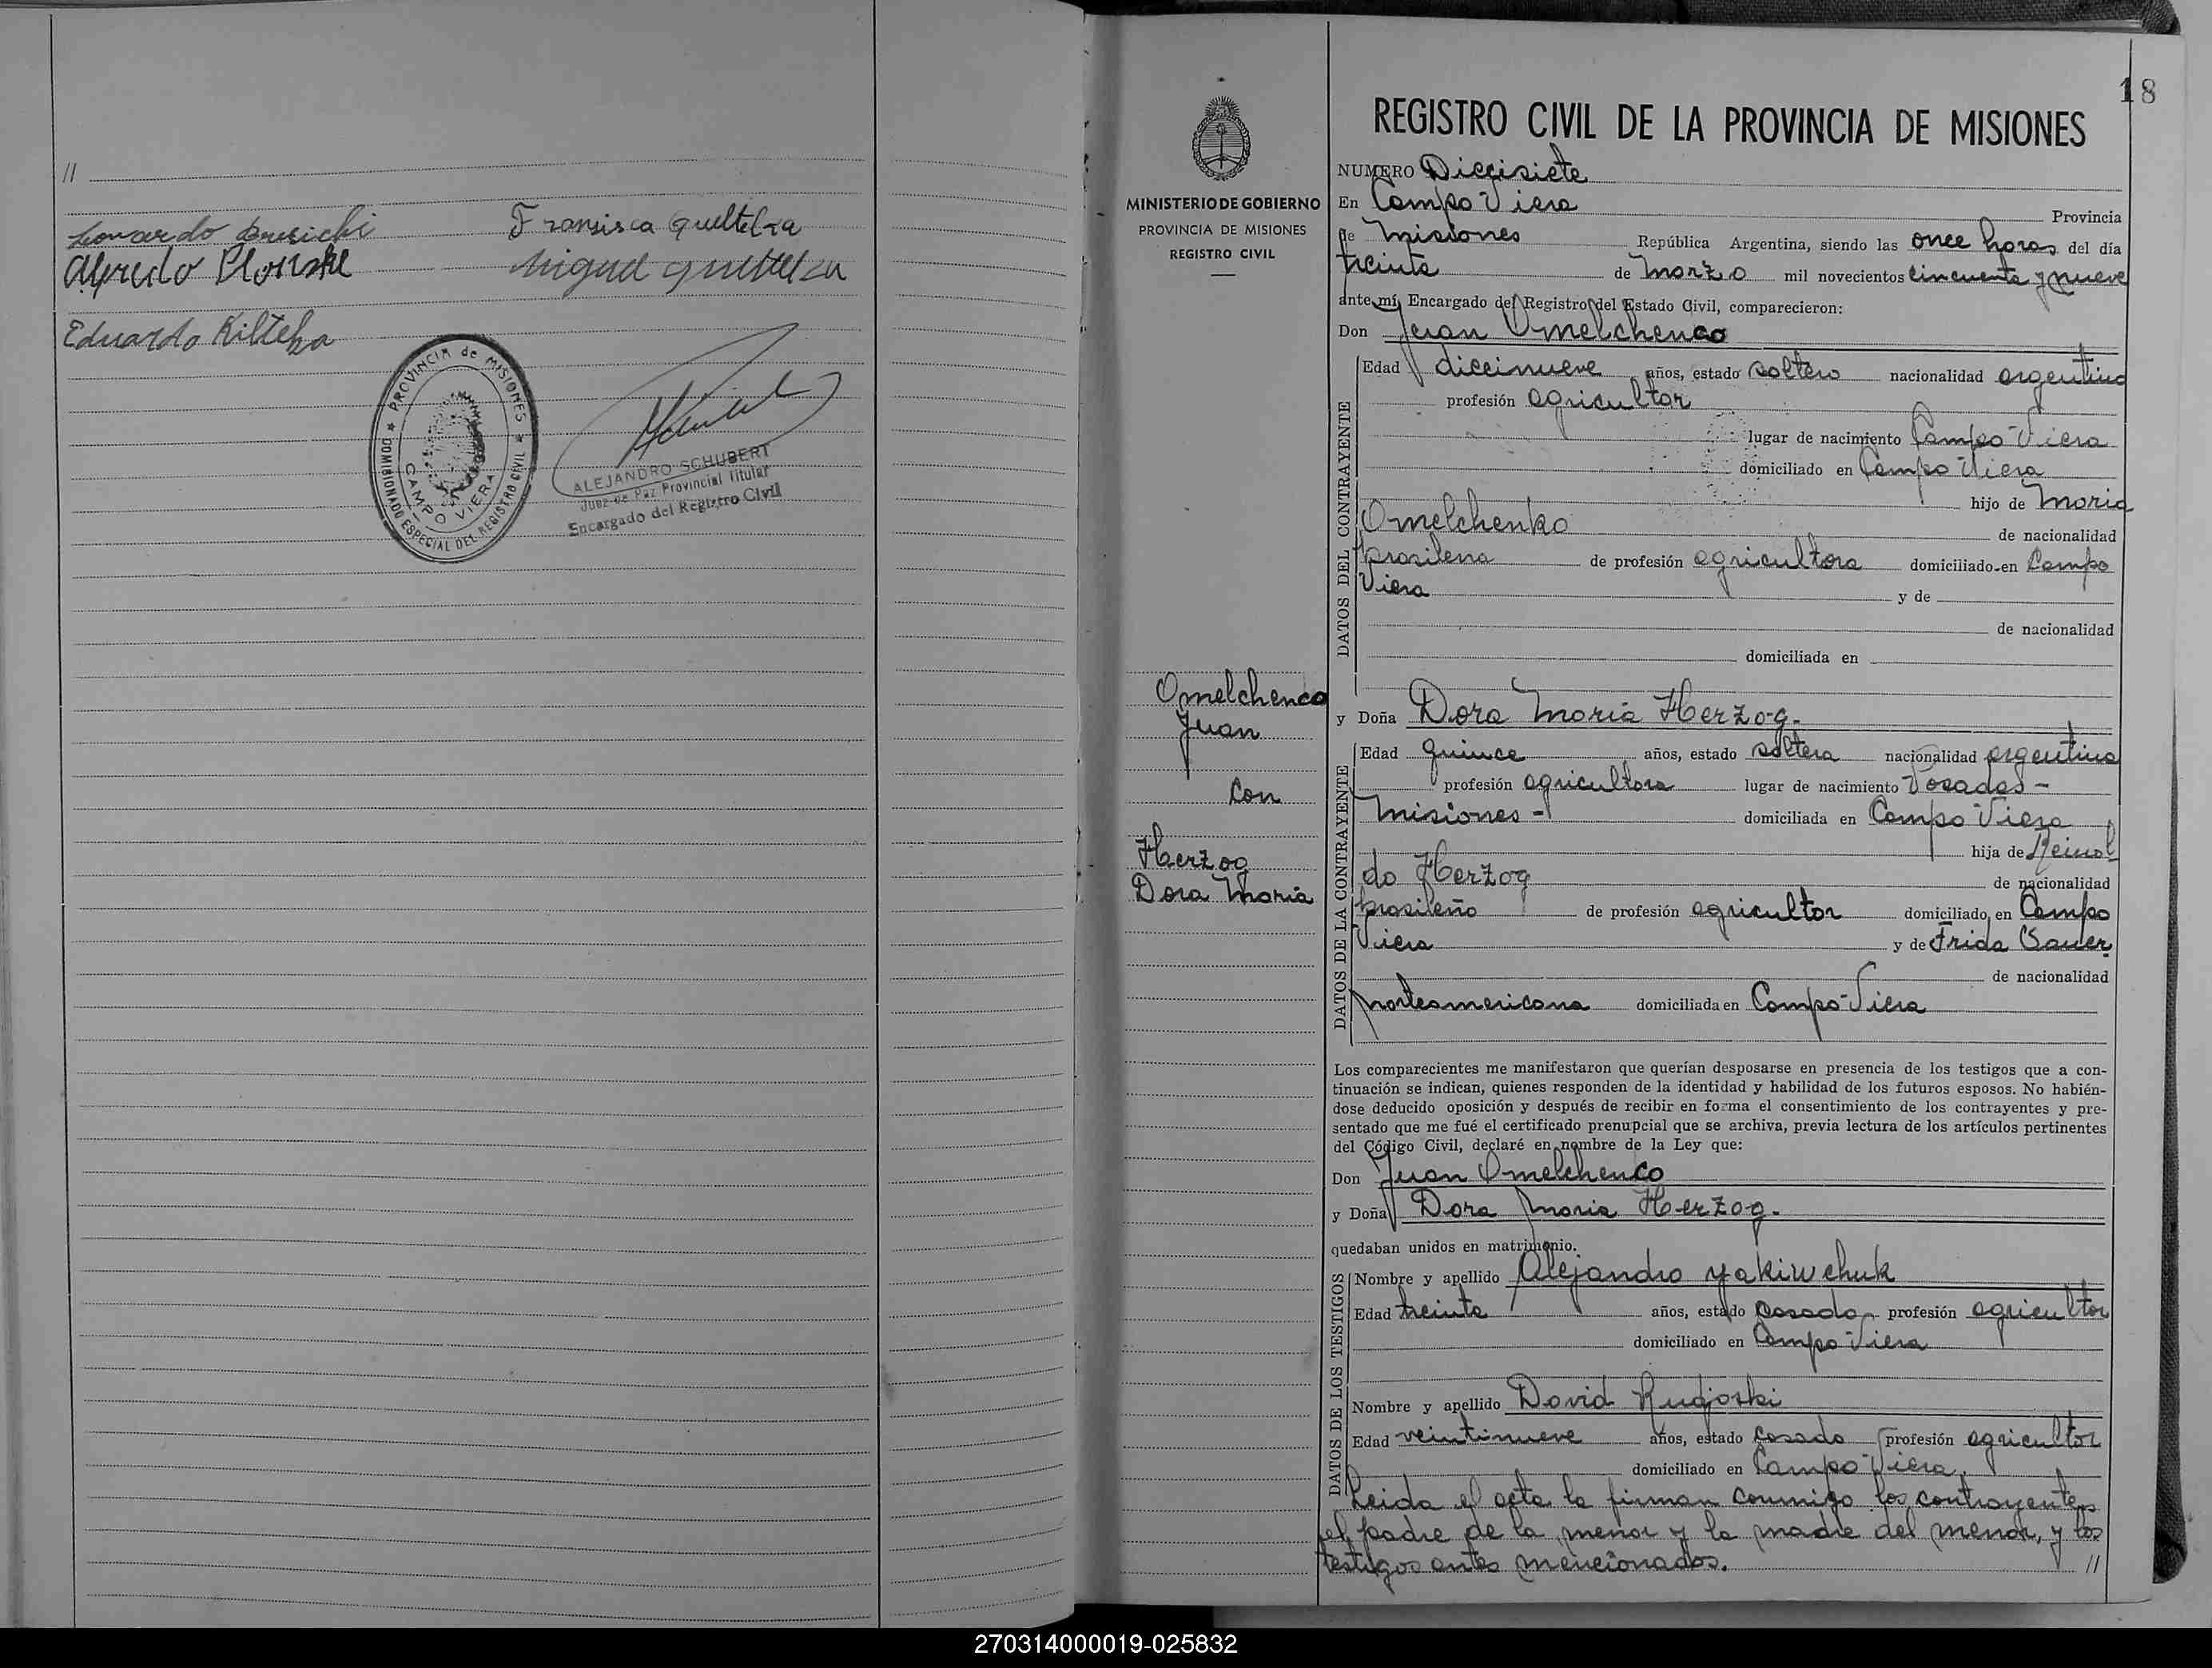 //
Alfredo Plonske
Fransisca Quelteza
Miguel
Eduardo Kilteka
PROVINCIA de MISIONES
COMISIONADO ESPECIAL DEL REGISTRO CIVIL
CAMPO VIERA
ALEJANDRO SCHUBERT
Juez de Paz Provincial Titular
Encargado del Registro Civil
18
MINISTERIO DE GOBIERNO
PROVINCIA DE MISIONES
REGISTRO CIVIL
Omelchenco
Juan
Con
Herzog
Dora Maria
REGISTRO CIVIL DE LA PROVINCIA DE MISIONES
NUMERO Diecisiete
En Campo Viera Provincia
de Misiones República Argentina, siendo las once horas del día
treinta de Marzo mil novecientos cincuenta y nueve
ante mí, Encargado del Registro del Estado Civil, comparecieron:
Don Juan Omelchenco
DATOS DEL CONTRAYENTE
Edad diecinueve años, estado soltero nacionalidad argentino
profesión agricultor
lugar de nacimiento Campo Viera
domiciliado en Campo Viera
hijo de Maria
Omelchenko de nacionalidad
brasilena de profesión agricultora domiciliado en Campo
Viera y de
de nacionalidad
domiciliada en
y Doña Dora Maria Herzog.-
DATOS DE LA CONTRAYENTE
Edad quince años, estado soltera nacionalidad argentina
profesión agricultora lugar de nacimiento Posadas -
Misiones - domiciliada en Campo Viera
hija de Reinol
do Herzog de nacionalidad
brasileño de profesión agricultor domiciliado en Campo
Viera y de Frida Bauer
de nacionalidad
norteamericana domiciliada en Campo Viera
Los comparecientes me manifestaron que querían desposarse en presencia de los testigos que a con-
tinuación se indican, quienes responden de la identidad y habilidad de los futuros esposos. No habién-
dose deducido oposición y después de recibir en forma el consentimiento de los contrayentes y pre-
sentado que me fué el certificado prenupcial que se archiva, previa lectura de los artículos pertinentes
del Código Civil, declaré en nombre de la Ley que:
Don Juan Omelchenco
y Doña Dora Maria Herzog.
quedaban unidos en matrimonio.
DATOS DE LOS TESTIGOS
Nombre y apellido Alejandro Yakiwchuk
Edad treinta años, estado casado profesión agricultor
domiciliado en Campo Viera
Nombre y apellido David Rudjoski
Edad veintinueve años, estado casado profesión agricultor
domiciliado en Campo Viera.
Leida el acta la firman conmigo los contrayentes
el padre de la menor y la madre del menor, y los
testigos antes mencionados. //
270314000019-025832